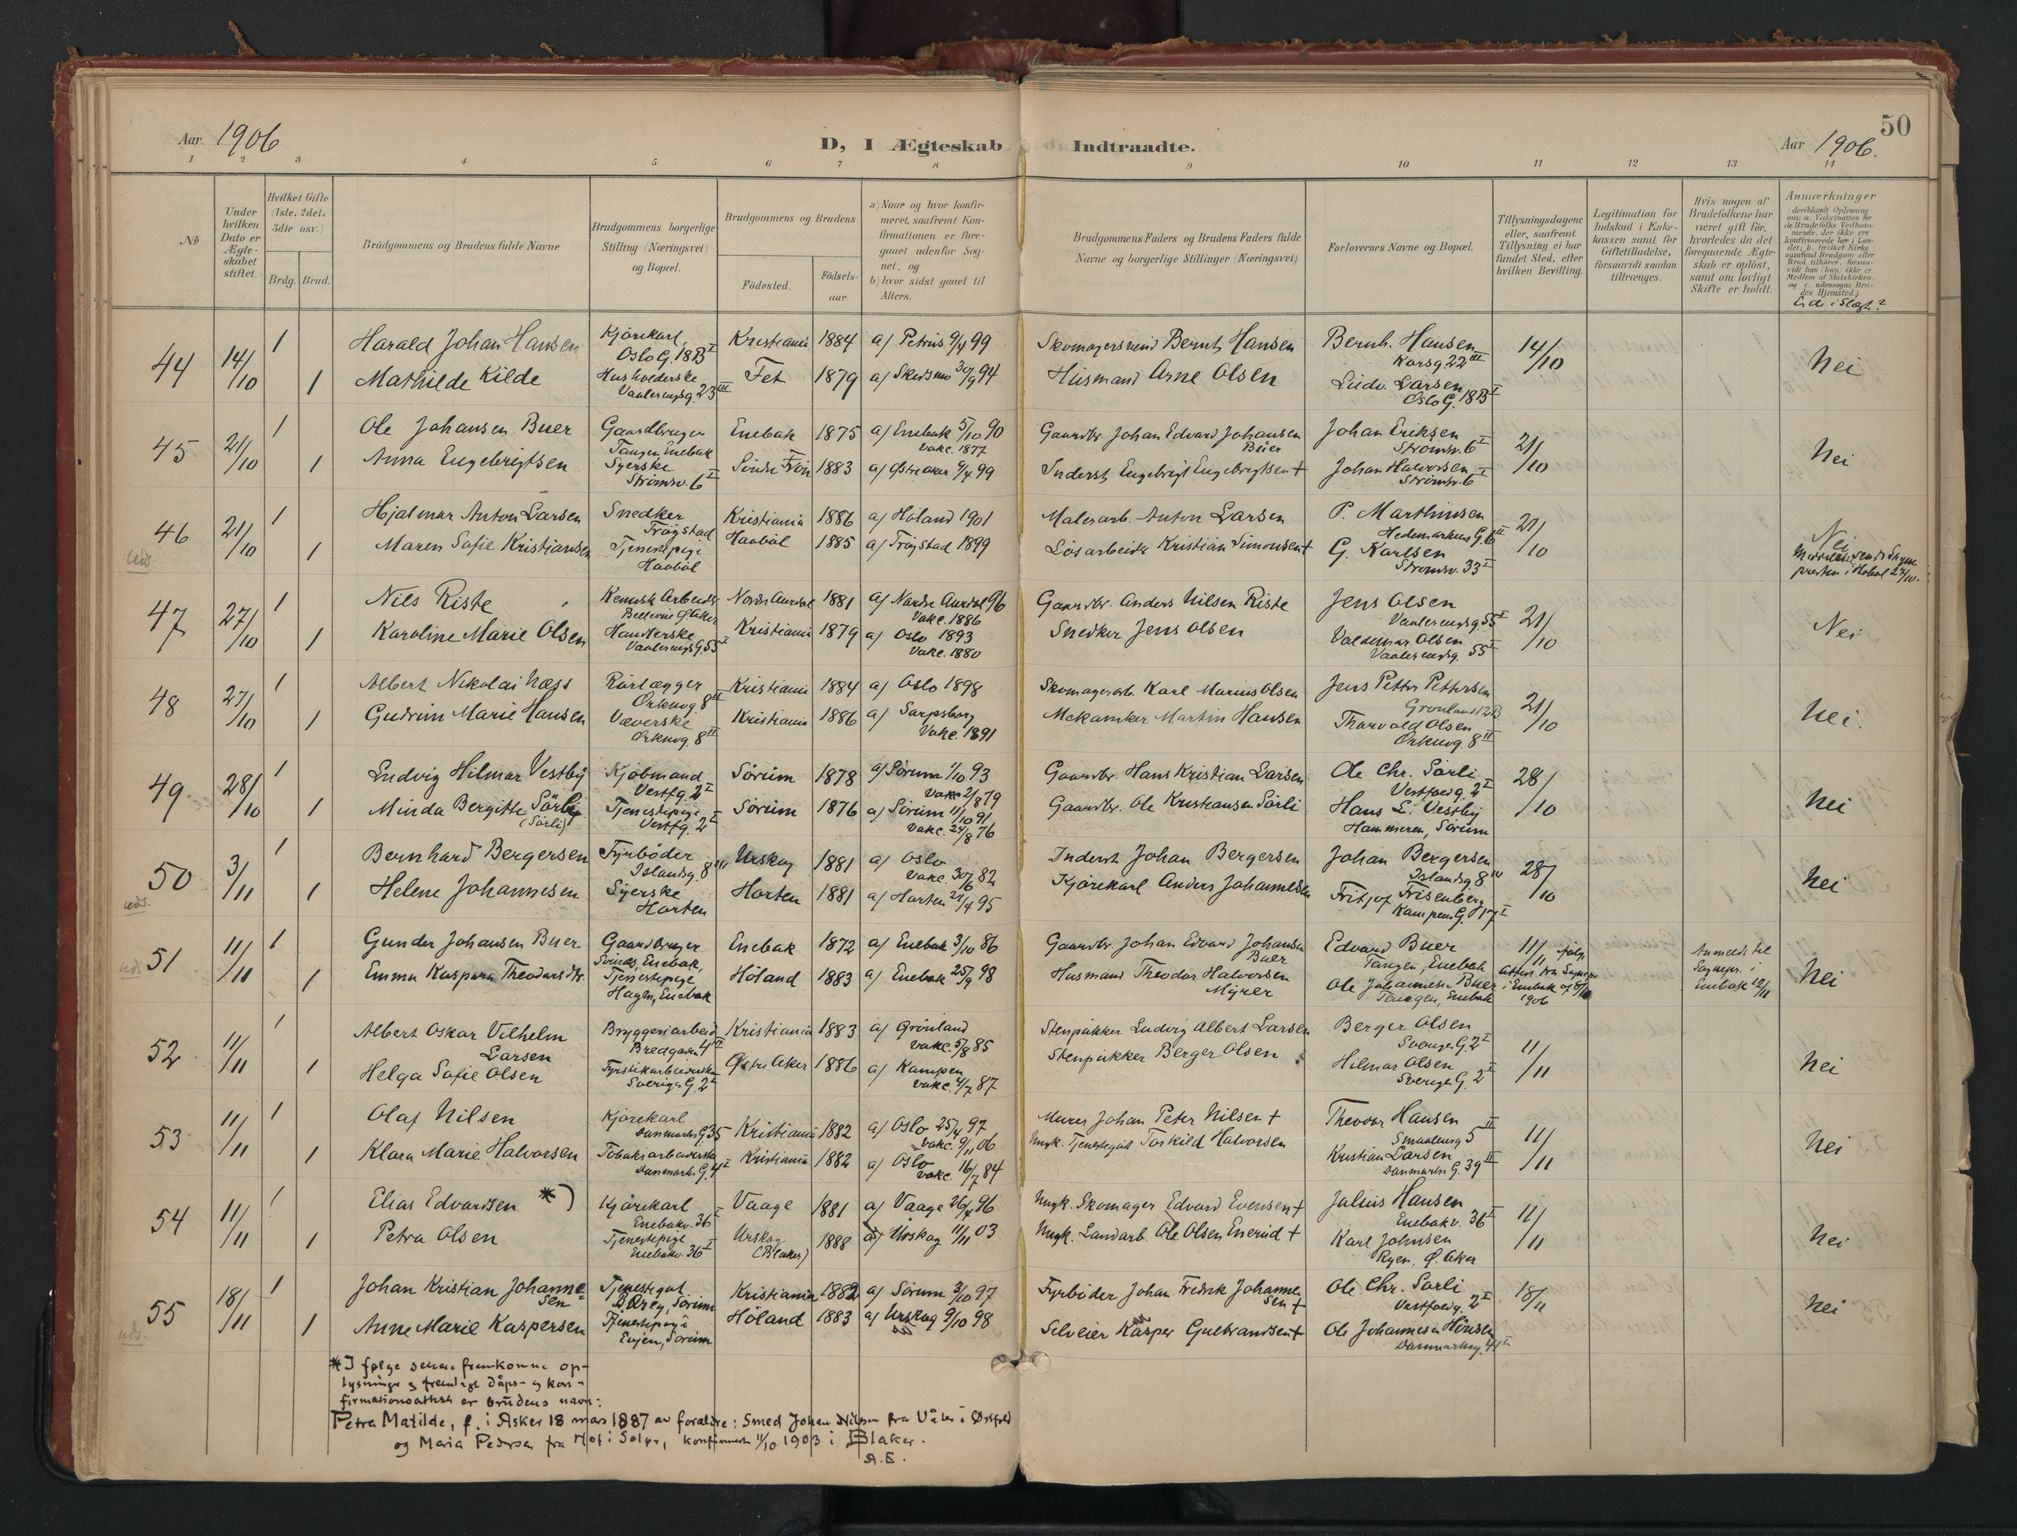 50
Aar 1906 D, I Ægteskab Indtraadte. Aar 1906.
1 2 3 4 5 6 7 8 9 10 11 12 13 14
No
Under hvilken Dato er Ægteskabet stiftet.
Hvilket Gifte (1ste, 2det, 3die osv.)
Brdg. Brud.
Brudgommens og Brudens fulde Navne
Brudgommens borgerlige Stilling (Næringsvei) og Bopæl.
Brudgommens og Brudens
Födested. Födsels-aar.
a) Naar og hvor konfirmeret, saafremt Konfirmationen er foregaaet udenfor Sognet, og
b) hvor sidst gaaet til Alters.
Brudgommens Faders og Brudens Faders fulde Navne og borgerlige Stillinger (Næringsvei)
Forlovernes Navne og Bopæl.
Tillysningsdagene eller, saafremt Tillysning ei har fundet Sted, efter hvilken Bevilling.
Legitimation for Indskud i Enkekassen samt for Giftetilladelse, forsaavidt saadan tiltrænges.
Hvis nogen af Brudefolkene har været gift för, hvorledes da det foregaaende Ægteskab er oplöst, samt om lovligt Skifte er holdt.
Anmærkninger
Er de i Slægt?
44 14/10 1 Harald Johan Hansen Kjörekarl, Oslo G. 18B I Kristiania 1884 a) Petrus 9/4 99 Skomagersvend Bernt Hansen Bernh. Hansen Korsg. 22 III 14/10 Nei
1 Mathilde Kilde Husholderske Vaalerengsg. 23 III Fet 1879 a) Skedsmo 30/9 94 Husmand Arne Olsen Ludv. Larsen Oslo G. 18B I
45 21/10 1 Ole Johansen Buer Gaardbruger Tangen, Enebak Enebak 1875 a) Enebak 5/10 90 Vakc. 1877 Gaardbr. Johan Edvard Johansen Buer Johan Eriksen Strömsv. 6 I 21/10 Nei
1 Anna Engebrigtsen Syerske Strömsv. 6 I Söndre Fron 1883 a) Östre Aker 9/4 99 Inderst Engebrigt Engebrigtsen + Johan Halvorsen Strömsv. 6 I
46 21/10 1 Hjalmar Anton Larsen Snedker Trögstad Kristiania 1886 a) Höland 1901 Malerarb. Anton Larsen P. Marthinsen Hedemarkens G. 6 III 21/10 Nei
uds. 1 Maren Sofie Kristiansen Tjenestepige Haabøl Haaböl 1885 a) Trögstad 1899 Lösarbeider Kristian Simonsen + G. Karlsen Strömsv. 33 I
47 27/10 1 Nils Riste Kemisk Arbeider Nordre Aurdal 1881 a) Nordre Aurdal 96 Vakc. 1886 Gaardbr. Anders Nilsen Riste Jens Olsen Vaalerengsg. 55 I 21/10 Nei
1 Karoline Marie Olsen Vaalerengsg. 55 I Kristiania 1879 a) Oslo 1893 Vakc. 1880 Snedker Jens Olsen Valdemar Olsen Vaalerengsg. 55 I
48 27/10 1 Albert Nikolai Næss Rörlægger Örkenvg. 8 II Kristiania 1884 a) Oslo 1898 Skomagerarb. Karl Marius Olsen Jens Petter Pettersen Grönland 12B 21/10 Nei.
1 Gudrun Marie Hansen Væverske Örkenvg. 8 II Kristiania 1886 a) Sarpsborg Vakc. 1891 Mekaniker Martin Hansen Thorvald Olsen Örkenvg. 8 II
49 28/10 1 Ludvig Hilmar Vestby Kjöbmand Vestfg. 2 I Sörum 1878 a) Sörum 1/10 93 Vakc 2/8 79 Gaardbr. Hans Kristian Larsen Ole Chr. Sörli Vestfoldg. 2 I 28/10 Nei
1 Minda Bergitte Sörby (Sörli) Tjenestepige Vestfg. 2 I Sörum 1876 a) Sörum 11/10 91 Vakc. 24/8 76 Gaardbr. Ole Kristiansen Sörli Hans L. Vestby Hammeren, Sörum
50 3/11 1 Bernhard Bergersen Fyrböder Islandsg. 8 III Urskog 1881 a) Oslo Vakc. 30/6 82 Inderst Johan Bergersen Johan Bergersen Islandsg. 8 III 28/10 Nei
uds. 1 Helene Johannesen Syerske Horten Horten 1881 a) Horten 21/4 95 Kjörekarl Anders Johannesen Fritjof Frisenberg Kampens G. 17 I
51 11/11 1 Gunder Johansen Buer Gaardbruger Svinds, Enebak, Enebak 1872 a) Enebak 3/10 86 Gaardbr. Johan Edvard Johansen Buer Edvard Buer Tangen, Enebak 11/11 ifölge Attest fra Sognepr. i Enebak af 8/11 1906 Anmeldt til Sognepr. i Enebak 12/11 Nei
uds. 1 Emma Kaspara Theodorsdtr. Tjenestepige Hagen, Enebak Höland 1883 a) Enebak 25/9 98 Husmand Theodor Halvorsen Myrer Ole Johannesen Buer Tangen, Enebak
52 11/11 1 Albert Oskar Vilhelm Larsen Bryggeriarbeid. Bredgaden 4 II Kristiania 1883 a) Grönland vakc. 5/8 85 Stenpukker Ludvig Albert Larsen Berger Olsen Sverges G. 2 I 11/11 Nei
1 Helga Sofie Olsen Fyrstikarbeiderske Sveriges G. 2 I Östre Aker 1886 a) Kampen Vakc. 4/7 87 Stenpukker Berger Olsen Hilmar Olsen Sverges G. 2 I
53 11/11 1 Olaf Nilsen Kjörekarl Danmarks G. 35 Kristiania 1882 a) Oslo 25/4 97 Vakc. 9/11 06 Murer Johan Peter Nilsen + Theodor Hansen Smaalensg. 5 II 11/11 Nei
1 Klara Marie Halvorsen Tobaksarbeiderske Danmarks G. 4 I Kristiania 1882 a) Oslo Vakc. 16/7 84 Ungk. Tjenestegut Torkild Halvorsen Kristian Larsen Danmarks G. 39 II
54 11/11 1 Elias Edvardsen *) Kjörekarl Enebakv. 36 I Vaage 1881 a) Vaage 26/4 96 Ungk. Skomager Edvard Evensen + Julius Hansen Enebakv. 36 I 11/11 Nei
1 Petra Olsen Tjenestepige Enebakv. 36 I Urskog (Blaker) 1888 a) Urskog 11/11 03 Ungk. Landarb. Ole Olsen Enerud + Karl Johnsen Ryen, Ö. Aker
55 18/11 1 Johan Kristian Johannesen Tjenestegut Sörum Kristiania 1882 a) Sörum 3/10 97 Fyrböder Johan Fredrik Johannesen + Ole Chr. Sörli Vestfoldg. 2 I 18/11 Nei
uds. 1 Anne Marie Kaspersen Tjenestepige Evjen, Sörum Höland 1883 a) Urskog 9/10 98 Selveier Kasper Gulbrandsen + Ole Johannesen Danmarksg. 41 I
*) I følge senere fremkomne op-
lysninger og fremlagt dåps- og kon-
firmationsattest er brudens navn:
Petra Matilde, f. i Asker 18 mars 1887 av foreldre: Smed Johan Nilsen fra Våler i Østfold
og Maria Pedersen fra Hof i Solør, konfirmert 11/10 1903 i Blaker.
A.E.